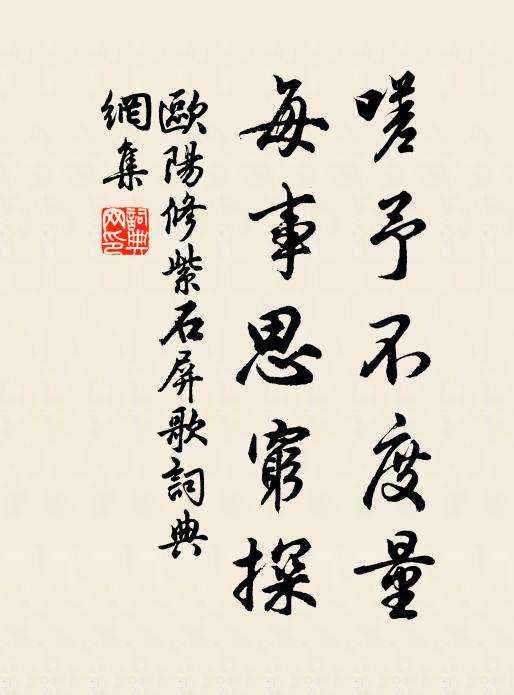 嗟予不度量
每事思窮探
歐陽修紫石屏歌詞典
網集
詞典网印